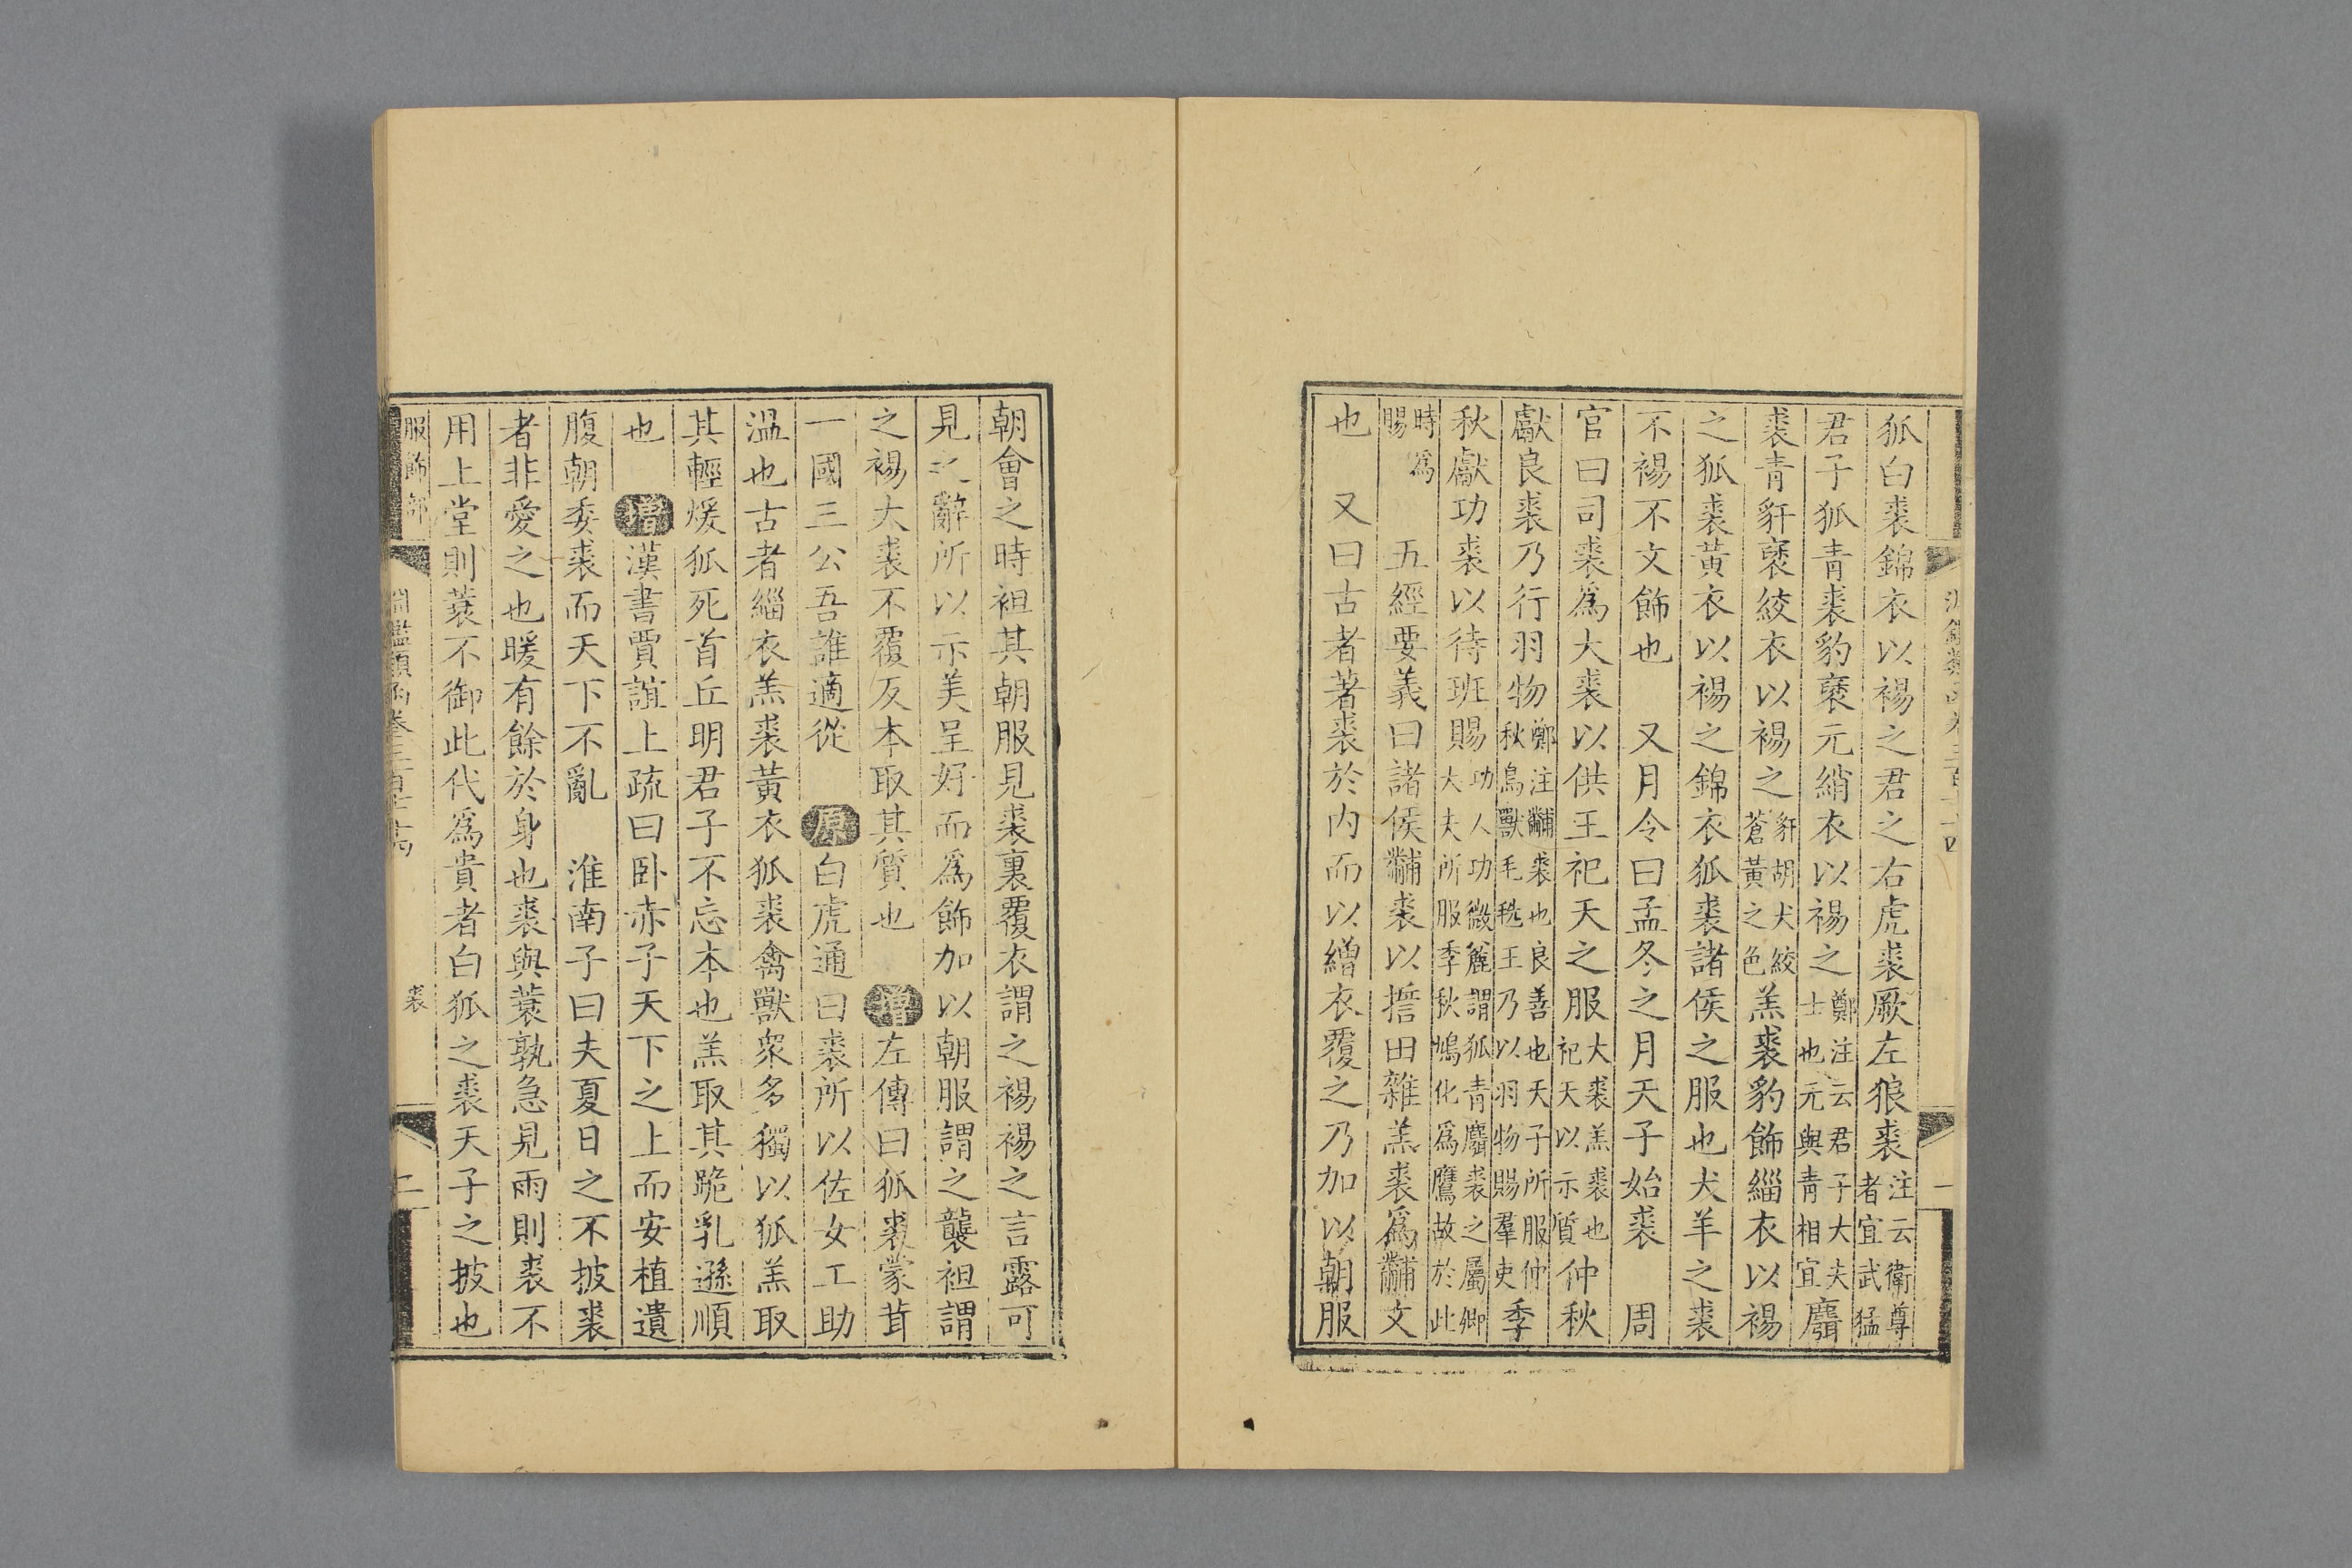 狐白裘錦衣以裼之君之右虎裘厥左狼裘注云衛尊者宜武猛
君子狐青裘豹褎元綃衣以裼之鄭注云君子大夫士也元與青相宜麛
裘青豻褎絞衣以裼之豻胡犬絞蒼黃之色羔裘豹飾緇衣以裼
之狐裘黃衣以裼之錦衣狐裘諸侯之服也犬羊之裘
不裼不文飾也　又月令曰孟冬之月天子始裘　周
官曰司裘為大裘以供王祀天之服大裘羔裘也祀天以示質仲秋
獻良裘乃行羽物鄭注黼裘也良善也天子所服仲秋鳥獸毛毨王乃以羽物賜羣吏季
秋獻功裘以待班賜功人功微麤謂狐青麛裘之屬卿大夫所服季秋鳩化為鷹故於此
時為賜　五經要義曰諸侯黼裘以誓田雜羔裘爲黼文
也　又曰古者著裘於內而以繒衣覆之乃加以朝服
朝會之時袒其朝服見裘裏覆衣謂之裼裼之言露可
見之辭所以示美呈好而為飾加以朝服謂之襲袒謂
之裼大裘不覆反本取其質也　增左傳曰狐裘蒙茸
一國三公吾誰適從　原白虎通曰裘所以佐女工助
溫也古者緇衣羔裘黃衣狐裘禽獸衆多獨以狐羔取
其輕煖狐死首丘明君子不忘本也羔取其跪乳遜順
也　增漢書賈誼上疏曰臥赤子天下之上而安植遺
腹朝委裘而天下不亂　淮南子曰夫夏日之不披裘
者非愛之也暖有餘於身也裘與蓑孰急見雨則裘不
用上堂則蓑不御此代為貴者白狐之裘天子之披也
服飾部　裘　二